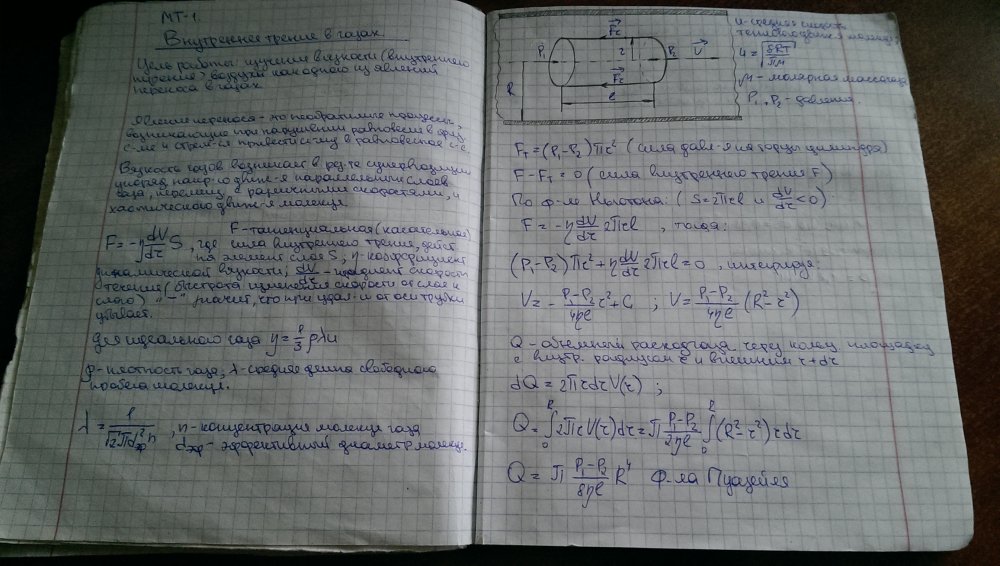 МТ-1.
Внутреннее трение в газах
Цель работы: изучение вязкости (внутреннего
трения) воздуха как одного из явлений
переноса в газах.
Явление переноса - это необратимые процессы,
возникающие при нарушении равновесия в
с-ме и стрем-ся привести с-му в равновесное с-е.
Вязкость газов возникает в рез-те суперпозиции
упоряд. напр-го движ-я параллельных слоёв
газа, перемещ. с различными скоростями, и
хаотического движ-я молекул.
F = -η dV/dr S, где F-тангенциальная (касательная)
сила внутреннего трения, действ.
на элемент слоя S; η-коэффициент
динамической вязкости; dV/dr - градиент скорости
течения (быстрота изменения скорости от слоя к
слою) "-" значит, что при удал-и от оси трубки
убывает.
Для идеального газа η = 1/3 ρλu
ρ-плотность газа, λ-средняя длина свободного
пробега молекул.
λ = 1/(√2 π d²эф n), n-концентрация молекул газа
dэф - эффективный диаметр молекул.
Fτ
P₁ r P₂ V
R
Fτ
l
u-средняя скорость
теплового движ-я молекул
u = √(8RT/πM)
M - молярная масса газа
P₁, P₂ - давления.
Fт = (P₁-P₂)πr² (сила давл-я на торцы цилиндра)
F - Fт = 0 (сила внутреннего трения F)
По ф-ле Ньютона: (S=2πrl и dV/dr < 0)
F = -η dV/dr 2πrl, тогда:
(P₁-P₂)πr² + η dV/dr 2πrl = 0, интегрируя:
V = - (P₁-P₂)/(4ηl) r² + C ; V = (P₁-P₂)/(4ηl) (R²-r²)
Q - объёмный расход газа через кольц. площадку
с внутр. радиусом r и внешним r+dr
dQ = 2πrdrV(r) ;
Q = ∫₀ᴿ 2πrV(r)dr = π (P₁-P₂)/(2ηl) ∫₀ᴿ (R²-r²)rdr
Q = π (P₁-P₂)/(8ηl) R⁴ Ф-ла Пуазейля